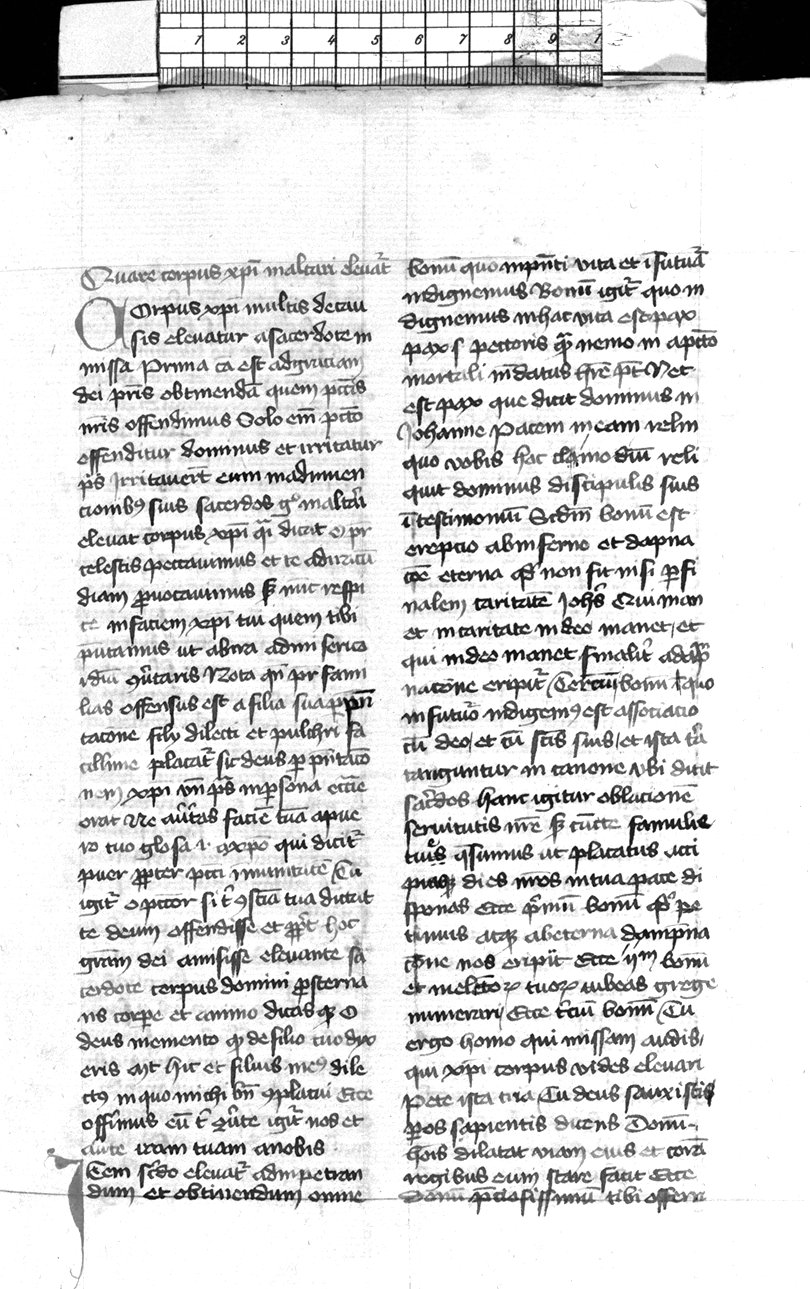 1 2 3 4 5 6 7 8 9 1
Quare corpus xpi in altari elevat̄
Corpus xpi multis de cau
sis elevatur a sacerdote in
missa Prima ca est ad graciam
dei pr̄is obtinendā quem pctīs
nr̄is offendimus Solo em̄ pctō
offenditur dominus et irritatur
p̄s Irritaverūt eum in adinven
cionibꝰ suis sacerdos gͦ in altari
elevat corpus xpi q̄i dicat O pr̄
celestis peccavimus et te ad iracū
diam p̄vocavimus sꝫ nūc respi
ce in faciem xpi tui quem tibi
p̄ntamus ut ab ira ad miserico
rdiā ꝯv̄taris Nota qn̄ pr̄ fami
lias offensus est a filia sua p p̄n
tacōne filii dilecti et pulchri fa
cillime placat̄ sic deus p p̄ntacō
nem xpi vn̄ p̄s in p̄sona ecc̄ie
orat Ne av̄tas faciē tuā a pue
ro tuo glosa .i. a xp̄o qui dicit̄
puer p̄pter pcti inmunitatē Tu
igit̄ o pctor si t̄ ꝯscīa tua dictat
te deum offendisse et pp̄t hoc
grām dei amisisse elevante sa
cerdote corpus domini p̄sterna
ris corpe et animo dicas qꝫ O
deus memento qꝫ de filio tuo dix
eris Mt hic et filius meꝰ dile
ctꝰ in quo michi bn̄ ꝯplacui Ecce
offīmus eū t̄ igit̄ nos et
av̄te iram tuam a nobis
Item scd̄o elevat̄ ad inpetran
dum et obtinendum omne
bonū quo in p̄nti vita et ī futurā
indigemus Bonū igit̄ quo in
digemus in hac vita est pax
pax s pectoris q̄ nemo in apcto
mortali h̄re p̄t Nec
est pax que dicit dominus in
Johanne Pacem meam relin
quo vobis hoc dīu reli
quit dominus discipulis suis
ī testimoniū Scdm̄ bonū est
erepcio ab inferno et dapna
cōe eterna qd̄ non fit nisi p fi
nalem caritatē Johs̄ Qui man
et in caritate in deo manet et
qui in deo manet finalit̄ a dāp
nacōne eripit̄ Terciū bonū quo
in futuro indigemꝰ est associacio
cū deo et cū sc̄is suis et ista t̄a
tanguntur in canone ubi dicit
sac̄dos hanc igitur oblacionē
servitutis nr̄e sꝫ cūcte familie
tue q̄sumus ut placatus acci
pias diesqꝫ nr̄os in tua pace di
sponas Ecce p̄mū bonū qd̄ pe
timus atqꝫ ab eterna dampna
cōne nos eripi Ecce ijm bonū
et in electoꝝ tuoꝝ iubeas grege
numerari Ecce t̄ciū bonū Tu
ergo homo qui missam audis
qui xpi corpus vides elevari
Pete ista tria Tu deus
p̄os sapientis dicens Donū
hoīs dilatat viam eius et corā
regibus eum stare facit Ecce
donū p̄ciosissimū tibi offerr